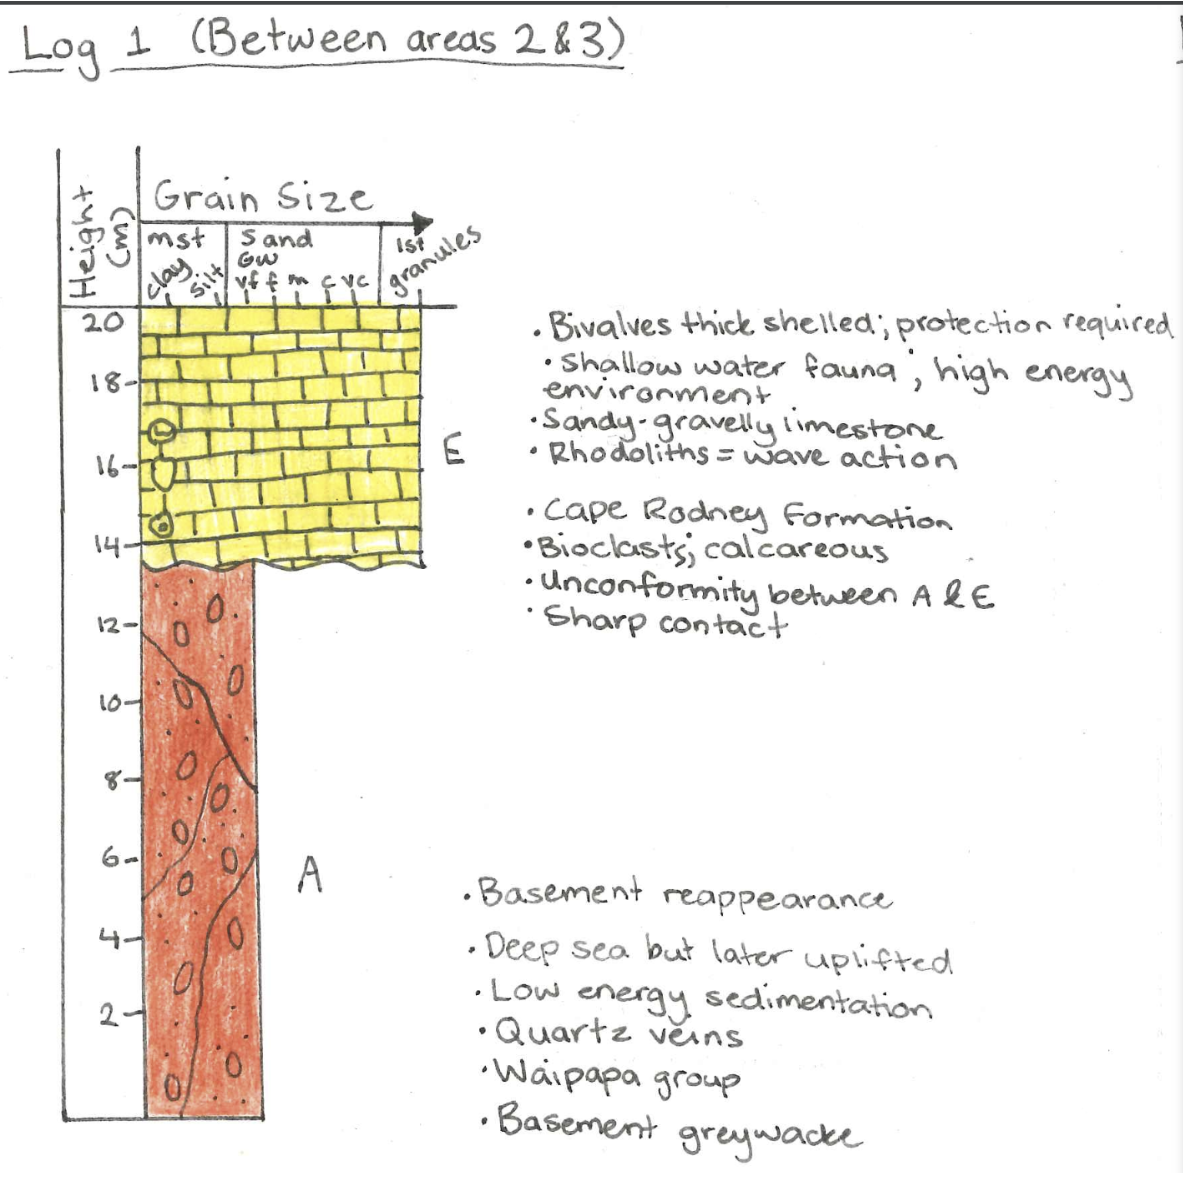 Log 1 (Between areas 2 & 3)
Height (m)
Grain Size
mst
clay
silt
Sand
GW
vf f m c vc
lst
granules
20
18
16
14
12
10
8
6
4
2
E
A
• Bivalves thick shelled; protection required
• Shallow water fauna; high energy
environment
• Sandy-gravelly limestone
• Rhodoliths = wave action
• Cape Rodney Formation
• Bioclasts; calcareous
• Unconformity between A & E
• Sharp contact
• Basement reappearance
• Deep sea but later uplifted
• Low energy sedimentation
• Quartz veins
• Waipapa group
• Basement greywacke